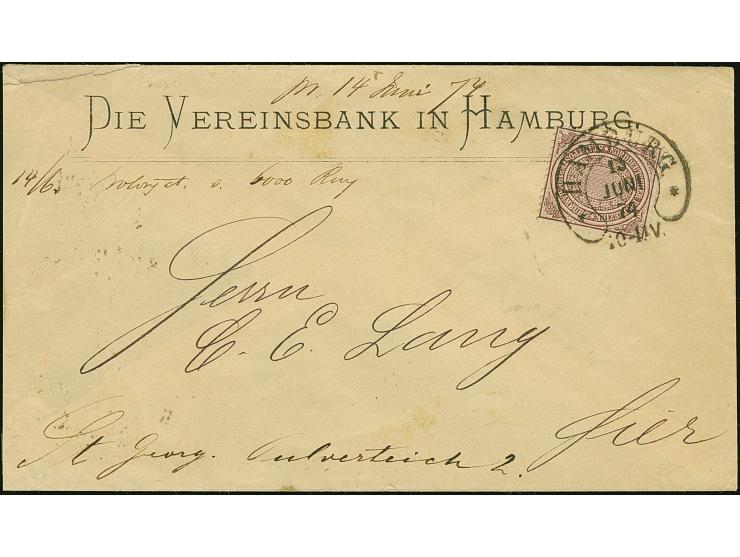 pr. 14 Juni 74
DIE VEREINSBANK IN HAMBURG
14/6. 6000
HAMBURG
13
JUNI
74
10-11V.
Herrn
C. E. Lang
hier
St. Georg. Pulverteich 2.